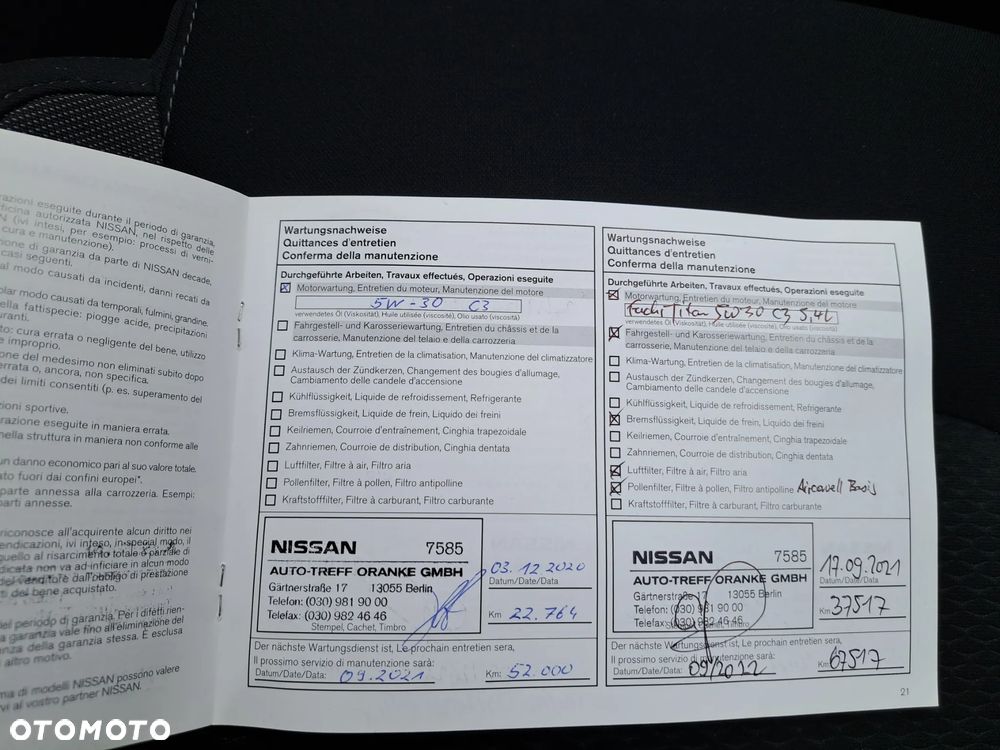 razioni eseguite durante il periodo di garanzia,
officina autorizzata NISSAN, nel rispetto delle
(ivi intesi, per esempio: processi di verni-
cura e manutenzione).
zione di garanzia da parte di NISSAN decade,
casi seguenti.
al modo causati da incidenti, danni recati da
olar modo causati da temporali, fulmini, grandine.
ella fattispecie: piogge acide, precipitazioni
uranti.
to: cura errata o negligente del bene, utilizzo
e improprio.
one del medesimo non eliminati subito dopo
errata o, ancora, non specifica.
dei limiti consentiti (p. es. superamento del
zioni sportive.
razione eseguite in maniera errata.
nella struttura in maniera non conforme alle
un danno economico pari al suo valore totale.
ato fuori dai confini europei*.
parte annessa alla carrozzeria. Esempi:
parti annesse.
riconosce all'acquirente alcun diritto nei
endicazioni, vi inteso, in special modo, il
quello al risarcimento totale o parziale di
dicata non va ad inficiare in alcun modo
del venditore dall'obbligo di prestazione
ti del bene acquistato.
del periodo di garanzia. Per i difetti rien-
a garanzia vale fino all'eliminazione del
enza della garanzia stessa. È esclusa
altro motivo.
ma di modelli NISSAN possono valere
rvi al vostro partner NISSAN.
Wartungsnachweise
Quittances d'entretien
Conferma della manutenzione
Durchgeführte Arbeiten, Travaux effectués, Operazioni eseguite
Motorwartung, Entretien du moteur, Manutenzione del motore
5W-30 C3
verwendetes Öl (Viskosität), Huile utilisée (viscosité), Olio usato (viscosità)
Fahrgestell- und Karosseriewartung, Entretien du châssis et de la
carrosserie, Manutenzione del telaio e della carrozzeria
Klima-Wartung, Entretien de la climatisation, Manutenzione del climatizzatore
Austausch der Zündkerzen, Changement des bougies d'allumage,
Cambiamento delle candele d'accensione
Kühlflüssigkeit, Liquide de refroidissement, Refrigerante
Bremsflüssigkeit, Liquide de frein, Liquido dei freini
Keilriemen, Courroie d'entraînement, Cinghia trapezoidale
Zahnriemen, Courroie de distribution, Cinghia dentata
Luftfilter, Filtre à air, Filtro aria
Pollenfilter, Filtre à pollen, Filtro antipolline
Kraftstofffilter, Filtre à carburant, Filtro carburante
NISSAN 7585
AUTO-TREFF ORANKE GMBH
Gärtnerstraße 17 13055 Berlin
Telefon: (030) 981 90 00
Telefax: (030) 982 46 46
Stempel, Cachet, Timbro
03.12.2020
Datum/Date/Data
Km 22.764
Der nächste Wartungsdienst ist, Le prochain entretien sera,
Il prossimo servizio di manutenzione sarà:
Datum/Date/Data: 09.2021 Km: 52.000
Wartungsnachweise
Quittances d'entretien
Conferma della manutenzione
Durchgeführte Arbeiten, Travaux effectués, Operazioni eseguite
Motorwartung, Entretien du moteur, Manutenzione del motore
Fuchs Titan 5W30 C3 5,4L
verwendetes Öl (Viskosität), Huile utilisée (viscosité), Olio usato (viscosità)
Fahrgestell- und Karosseriewartung, Entretien du châssis et de la
carrosserie, Manutenzione del telaio e della carrozzeria
Klima-Wartung, Entretien de la climatisation, Manutenzione del climatizzatore
Austausch der Zündkerzen, Changement des bougies d'allumage,
Cambiamento delle candele d'accensione
Kühlflüssigkeit, Liquide de refroidissement, Refrigerante
Bremsflüssigkeit, Liquide de frein, Liquido dei freini
Keilriemen, Courroie d'entraînement, Cinghia trapezoidale
Zahnriemen, Courroie de distribution, Cinghia dentata
Luftfilter, Filtre à air, Filtro aria
Pollenfilter, Filtre à pollen, Filtro antipolline Basis
Kraftstofffilter, Filtre à carburant, Filtro carburante
NISSAN 7585
AUTO-TREFF ORANKE GMBH
Gärtnerstraße 17 13055 Berlin
Telefon: (030) 981 90 00
Telefax: (030) 982 46 46
Stempel, Cachet, Timbro
17.09.2021
Datum/Date/Data
Km 37517
Der nächste Wartungsdienst ist, Le prochain entretien sera,
Il prossimo servizio di manutenzione sarà:
Datum/Date/Data: 09/2022 Km: 67517
21
OTOMOTO